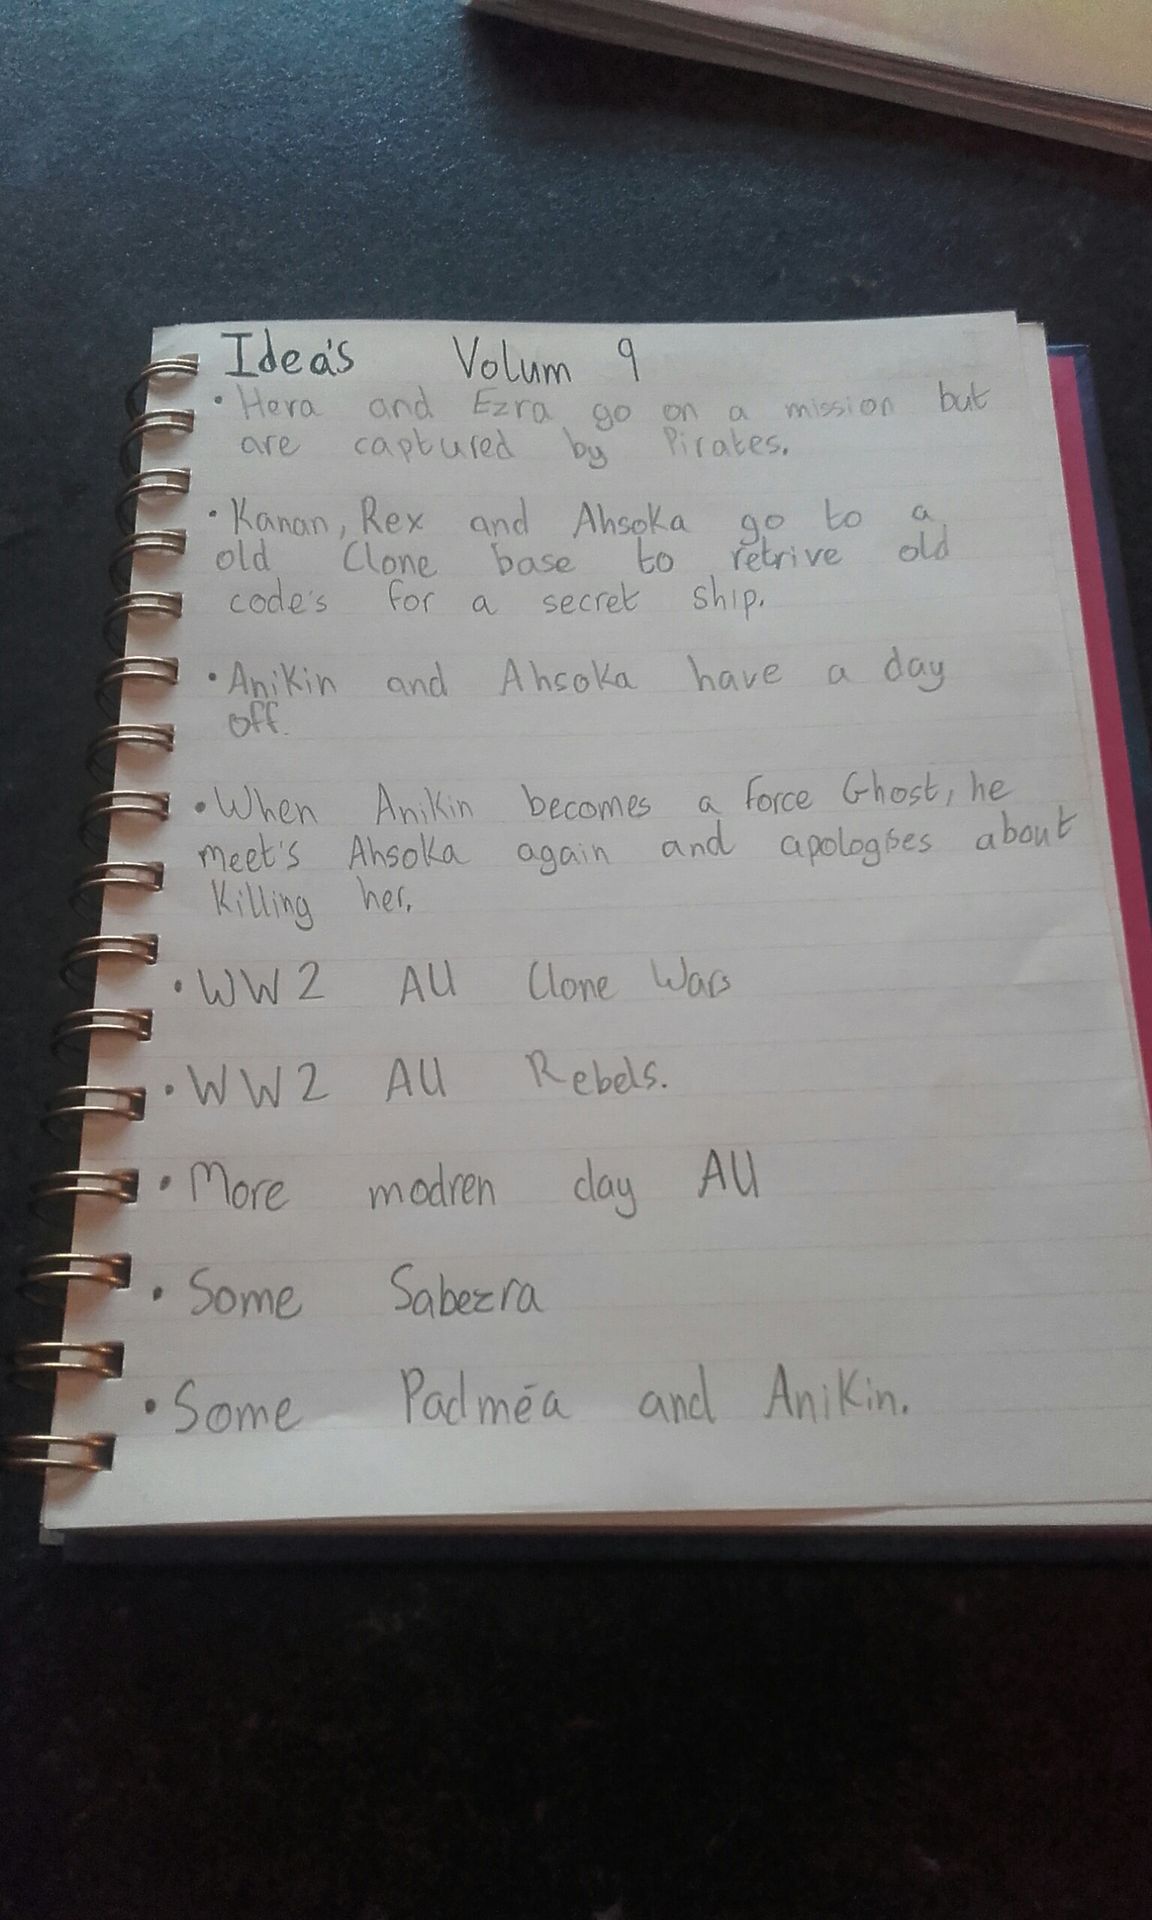 Idea's Volum 9
• Hera and Ezra go on a mission but
are captured by Pirates.
• Kanan, Rex and Ahsoka go to a
old Clone base to retrive old
code's for a secret ship.
• Anikin and Ahsoka have a day
off.
• When Anikin becomes a force Ghost, he
meet's Ahsoka again and apologises about
Killing her.
• WW2 AU Clone Wars
• WW2 AU Rebels.
• More modren day AU
• Some Sabezra
• Some Padméa and Anikin.